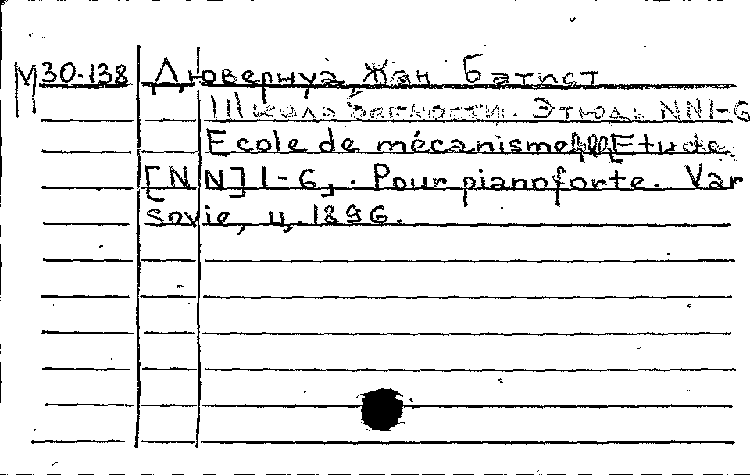 М30-138 Дювернуа, Жан Батист
Школа беглости. Этюды NN1-6
Ecole de mécanisme Etude
[NN] 1-6, . Pour pianoforte. Var
sovie, ц. 1896.